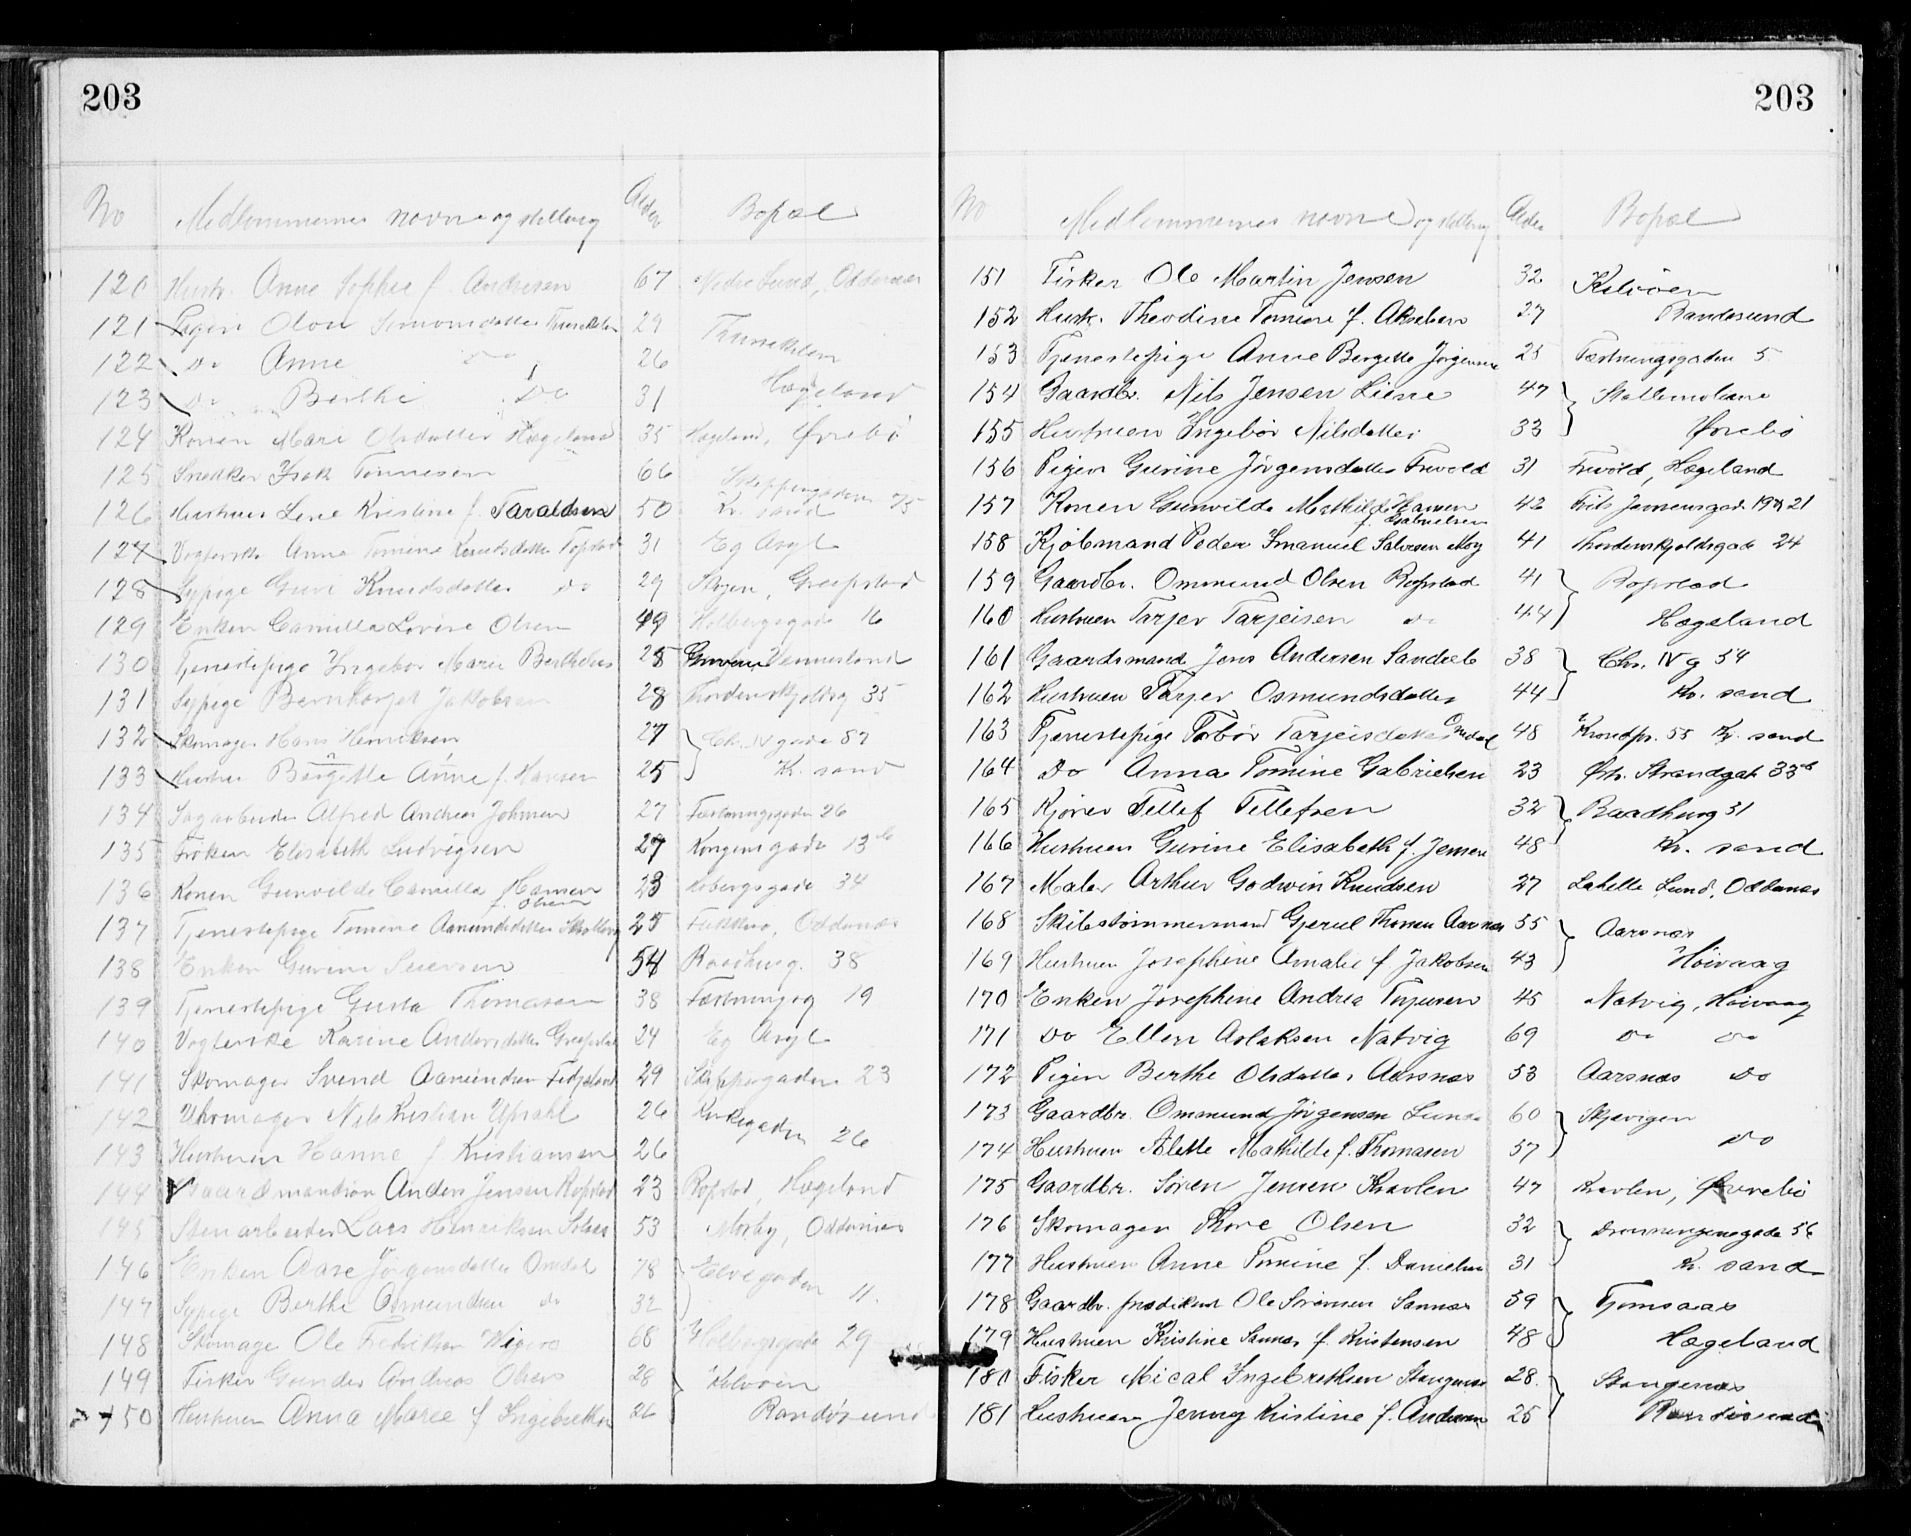 203
No Medlemmernes navne og stilling Alder Bopæl
120 Hustr. Anne Sophie f. Andresen 67 Nedre Lund, Oddernes
121 Pigen Olou Simonsdatter 29
122 do Anne do 26
123 do Berthe do 31 Hægeland
124 Konen Mari Olsdatter Hægeland 35 Hægeland, Øvrebö
125 Snedker Isak Tönnesen 66
126 Hustruen Lene Kristine f. Taraldsen 50 Kr. sand
127 Vogterske Anne Tomine Knudsdatter 31 Eg Asyl
128 Sypige Guro Knudsdatter do 29 Greipstad
129 Enken Camilla Lovise Olsen 49 Holbergsgade 16
130 Tjenestepige Ingebor Marie Berthelsen 28 Vennesland
131 Sypige Jakobsen 28 Thordenskjoldsg 35
132 Skomager Hans Henriksen 27 Ch. IV gade 87
133 Hustru Bergette Anne f. Hansen 25 Kr. sand
134 Sagarbeider Alfred Andreas Johnsen 27 Fæstningsgaden 26
135 Fröken Elisabeth Ludvigsen 27 Kongensgade 13 b
136 Konen Gunvilde Camilla Hansen f. Olsen 23 Holbergsgade 34
137 Tjenestepige Tomine Aanundsdatter 25 Oddernes
138 Enken Gurine Syversen 54 Raadhusg. 38
139 Tjenestepige Gusta Thomassen 38 Fæstningsg 19
140 Vogterske Karine Andersdatter Greipstad 24 Eg Asyl
141 Skomager Svend Aanundsen 29 Skippergaden 23
142 Uhrmager Nils Kristian Upsahl 26 Kirkegaden 26
143 Hustruen Hanne f Kristiansen 26
144 Gaardmandsön Anders Jensen Ropstad 23 Ropstad, Hægeland
145 Stenarbeider Lars Henriksen 53 Mosby, Oddernes
146 Enken Aase Jörgensdatter Omdal 78 Elvegaden 11.
147 Sypige Berthe Osmundsen do 32
148 Skomager Ole Fredriksen 68 Holbergsgade 29
149 Fisker Gunder Andreas Olsen 28 Kelvöen
150 Hustruen Anna Marie f Ingebretsen 26 Randösund
203
No Medlemmernes navne og stilling Alder Bopæl
151 Fisker Ole Martin Jensen 32 Kelvöen
152 Hustr. Theodine Tomine f. Akselsen 27 Randösund
153 Tjenestepige Anne Bergette Jörgensen 25 Fæstningsgaden 5
154 Gaardbr. Nils Jensen Liene 47 Stallemoliene
155 Hustruen Ingebör Nilsdatter 33 Øvrebö
156 Pigen Gurine Jörgensdatter Frivold 31 Frivold, Hægeland
157 Konen Gunvilde Mathilde Hansen f. Gabrielsen 42 Frits Jensensgade 19 og 21
158 Kjöbmand Peder Imanuel Salvesen Moy 41 Thordenskjoldsgade 24
159 Gaardbr. Ommund Olsen Ropstad 41 Ropstad
160 Hustruen Tarjer Tarjeisen do 44 Hægeland
161 Gaardmand Jens Andersen Sandreb 38 Chr. IV g 54
162 Hustruen Tarjer Osmundsdatter 44 Kr. sand
163 Tjenestepige Torbör Tarjeisdatter Omdal 48 Kronpr. 55 Kr. sand
164 Do Anna Tomine Gabrielsen 23 Østr. Strandgate 33 b
165 Kjörer Tellef Tellefsen 32 Raadhusg 31
166 Hustruen Gurine Elisabeth f. Jensen 48 Kr. sand
167 Maler Arthur Godwin Knudsen 27 Lahelle Lund, Oddernes
168 Skibstömmermand Gjerul Thomsen Aarsnes 55 Aarsnæs
169 Hustruen Josephine Amalie f Jakobsen 43 Höivaag
170 Enken Josephine Andrea Terjesen 45 Natvig, Höivaag
171 Do Ellen Aslaksen Natvig 69 do do
172 Pigen Berthe Olsdatter Aarsnæs 53 Aarsnæs do
173 Gaardbr. Ommund Jörgensen Lunde 60 Skjævigen
174 Hustruen Alette Mathilde f. Thomasen 57 do
175 Gaardbr. Sören Jensen Kravlen 47 Kravlen, Øvrebö
176 Skomager Thore Olsen 32 Dronningensgade 56
177 Hustruen Anne Tomine f. Danielsen 31 Kr. sand
178 Gaardbr. prædikant Ole Sörensen Sannæs 39 Tjomsaas
179 Hustruen Kristine Sannæs f. Kristensen 48 Hægeland
180 Fisker Mical Ingebrethsen Stangenæs 28. Stangenæs
181 Hustruen Jenny Kristine f. Andersen 25 Randösund